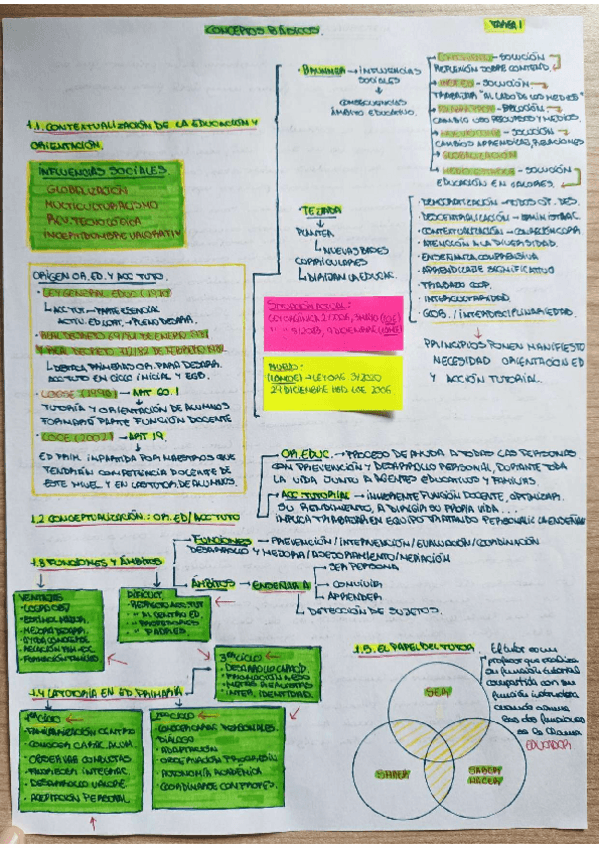 CONCEPTOS BÁSICOS.
TEMA 1
1.1. CONTEXTUALIZACIÓN DE LA EDUCACIÓN Y
ORIENTACIÓN.
INFLUENCIAS SOCIALES.
GLOBALIZACIÓN
MULTICULTURALISMO
REV. TECNOLÓGICA
INCERTIDUMBRE VALORATIV
BRUNNER → INFLUENCIAS
SOCIALES
↓
CONSECUENCIAS
ÁMBITO EDUCATIVO.
- SOLUCIÓN
REFLEXIÓN SOBRE CONTENID.
- SOLUCIÓN
TRABAJAR "AL LADO DE LOS MEDIOS"
- SOLUCIÓN
CAMBIO USO RECURSOS Y MEDIOS.
- SOLUCIÓN
CAMBIOS APRENDIZAJ, RELACIONES
GLOBALIZACIÓN
- SOLUCIÓN
EDUCACIÓN EN VALORES.
TEJADA
↓
PLANTEA
↳ NUEVAS BASES
CURRICULARES
↳ DIRIJAN LA EDUCAC.
· DEMOCRATIZACIÓN → TODOS OP. DES.
· DESCENTRALIZACIÓN → ADMINISTRAC.
· CONTEXTUALIZACIÓN →
· ATENCIÓN A LA DIVERSIDAD.
· ENSEÑANZA COMPRENSIVA
· APRENDIZAJE SIGNIFICATIVO
· TRABAJO COOP.
· INTERCULTURALIDAD.
· GLOB. / INTERDISCIPLINARIEDAD.
PRINCIPIOS PONEN MANIFIESTO
NECESIDAD ORIENTACIÓN ED
Y ACCIÓN TUTORIAL.
SITUACIÓN ACTUAL:
LEY ORGÁNICA 2/2006, 3 MAYO (LOE)
" " 8/2013, 9 DICIEMBRE (LOMCE)
NUEVO:
(LOMLOE) → LEY ORG 3/2020
29 DICIEMBRE MOD LOE 2006
ORIGEN OR. ED. Y ACC TUTO.
· LEY GENERAL EDUC (1970)
↳ ACC TUT → PARTE ESENCIAL
ACTIV. EDUCAT. → PLENO DESARR.
· REAL DECRETO 69/81 DE ENERO 1981
Y REAL DECRETO 710/82 DE FEBRERO 1982
↳ DESTACA PRIMARIAS OR. PARA DESARR.
ACC TUTO EN CICLO INICIAL Y EGB.
· LOGSE (1990) → ART 60.1
↓
TUTORÍA Y ORIENTACIÓN DE ALUMNOS
FORMARÁ PARTE FUNCIÓN DOCENTE
· LOCE (2002) → ART 19.
↓
ED PRIM. IMPARTIDA POR MAESTROS QUE
TENDRÁN COMPETENCIA DOCENTE DE
ESTE NIVEL Y EN LAS TUTOR. DE ALUMNOS.
1.2 CONCEPTUALIZACIÓN: OR. ED / ACC TUTO
OR. EDUC. → PROCESO DE AYUDA A TODAS LAS PERSONAS
CON PREVENCIÓN Y DESARROLLO PERSONAL, DURANTE TODA
LA VIDA JUNTO A AGENTES EDUCATIVOS Y FAMILIAS.
ACC TUTORIAL → INHERENTE FUNCIÓN DOCENTE, OPTIMIZAR
SU RENDIMIENTO, A DIRIGIR SU PROPIA VIDA...
IMPLICA TRABAJAR EN EQUIPO TRATANDO PERSONALIZ LA ENSEÑAN
1.3 FUNCIONES Y ÁMBITOS
FUNCIONES → PREVENCIÓN / INTERVENCIÓN / EVALUACIÓN / COORDINACIÓN
DESARROLLO Y MEJORA / ASESORAMIENTO / MEDIACIÓN
ÁMBITOS → ENSEÑAR A
SER PERSONA
CONVIVIR
APRENDER
DETECCIÓN DE SUJETOS.
VENTAJAS
· LOGRO OBJ
· MEJORA DESARR.
· AYUDA CONOCERSE
DIFICULT.
· RESPECTO ACC TUT
· " AL CENTRO ED.
· " PROFESORES
· " PADRES
1.4 LA TUTORÍA EN ED. PRIMARIA
3er CICLO
· DESARROLLO CAPACID.
· METAS REALISTAS
· INTER, IDENTIDAD.
1er CICLO
· FAMILIARIZACIÓN CENTRO
· CONOCER CARAC. ALUM.
· OBSERVAR CONDUCTAS
· FAVORECER INTEGRAC.
· DESARROLLO VALORES
· ACEPTACIÓN PERSONAL
2º CICLO
· CONOCER CARAC PERSONALES.
· DIÁLOGO
· ADAPTACIÓN
· OBSERVACIÓN PROGRESIÓN
· AUTONOMÍA ACADÉMICA
· COORDINARSE CON PROFES.
1.5. EL PAPEL DEL TUTOR
El tutor es un
profesor que realiza
su función tutorial
compartida con su
función instructiva
cuando asume
las dos funciones
se le llama
EDUCADOR
SER
SABER
SABER
HACER